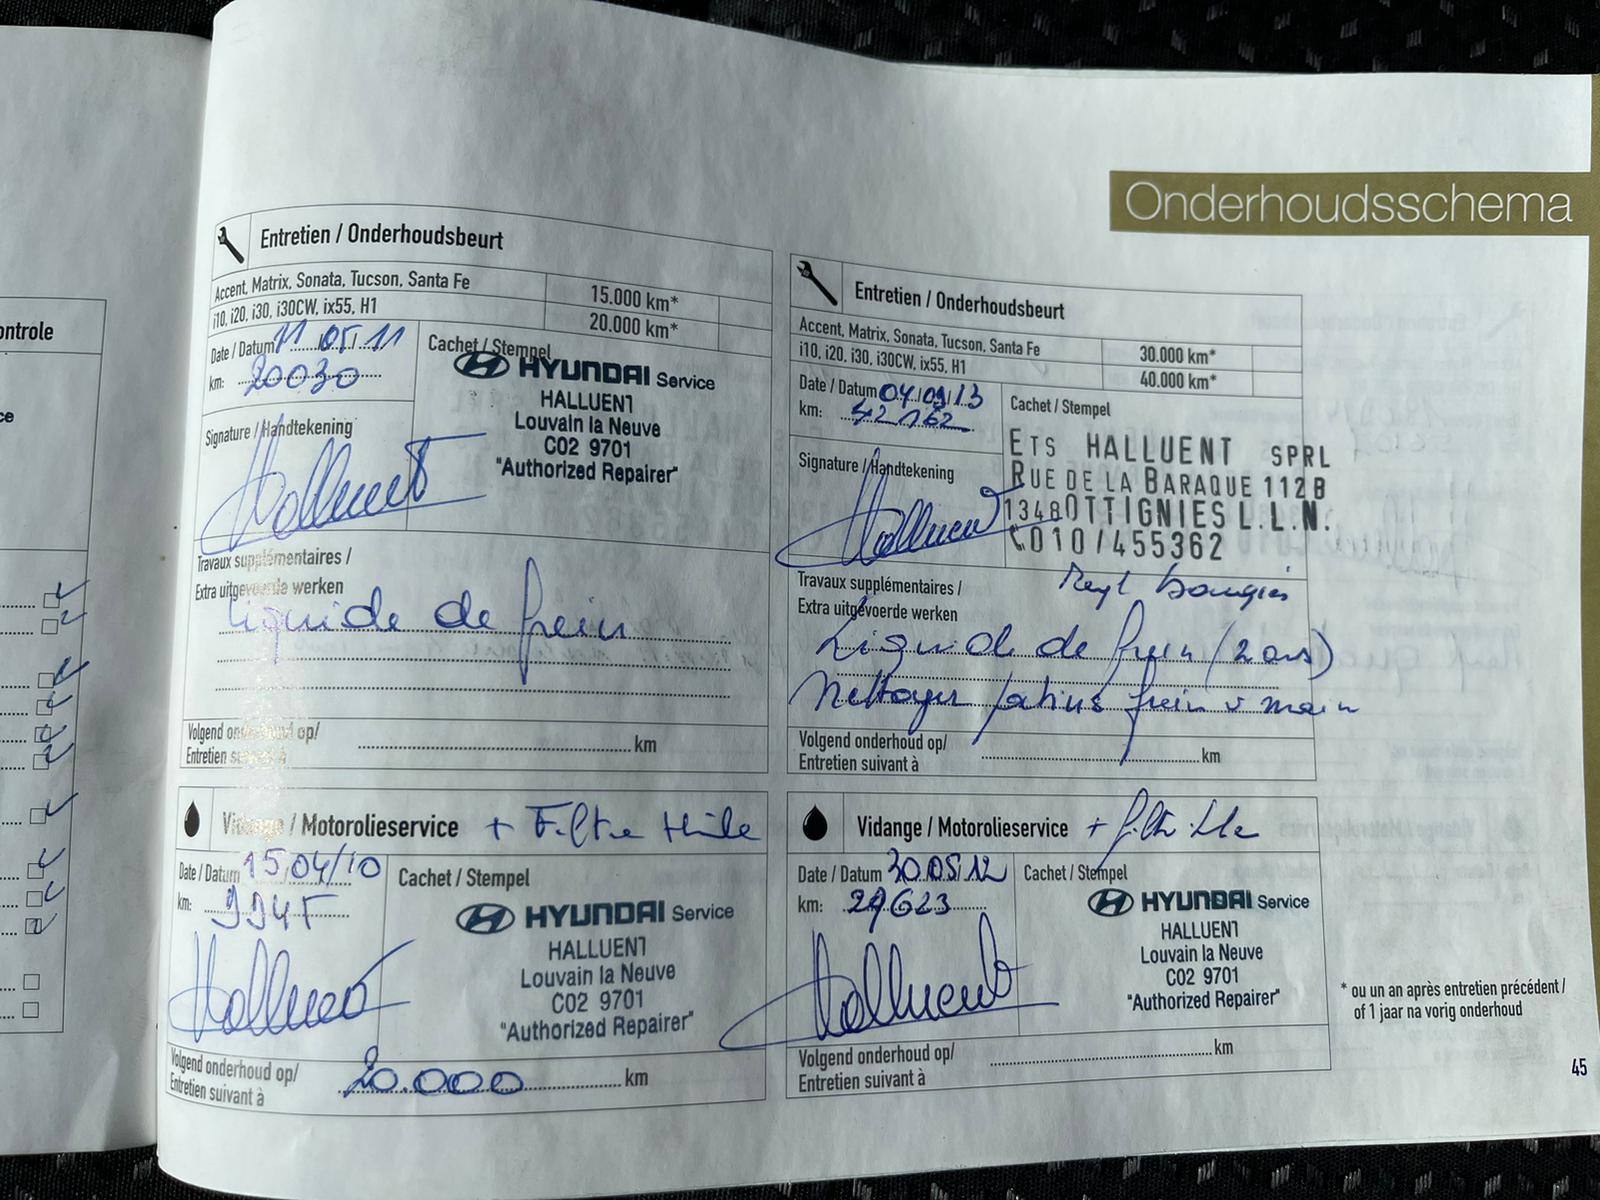 ontrole
ce
Onderhoudsschema
Entretien / Onderhoudsbeurt
Accent, Matrix, Sonata, Tucson, Santa Fe 15.000 km*
i10, i20, i30, i30CW, ix55, H1 20.000 km*
Date / Datum 11 05 11
km: 20030
Cachet / Stempel
HYUNDAI Service
HALLUENT
Louvain la Neuve
C02 9701
"Authorized Repairer"
Signature / Handtekening
Halluent
Travaux supplémentaires /
Extra uitgevoerde werken
Liquide de frein
Volgend onderhoud op/
Entretien suivant à km
Entretien / Onderhoudsbeurt
Accent, Matrix, Sonata, Tucson, Santa Fe 30.000 km*
i10, i20, i30, i30CW, ix55, H1 40.000 km*
Date / Datum 04/09/13
km: 42162
Cachet / Stempel
ETS HALLUENT SPRL
RUE DE LA BARAQUE 112B
1348 OTTIGNIES L.L.N.
010/455362
Signature / Handtekening
Halluent
Travaux supplémentaires /
Extra uitgevoerde werken
Bougies
Liquide de frein (2 ans)
Nettoyer patins frein à main
Volgend onderhoud op/
Entretien suivant à km
Vidange / Motorolieservice + Filtre Huile
Date / Datum 15/04/10
km:
Cachet / Stempel
HYUNDAI Service
HALLUENT
Louvain la Neuve
C02 9701
"Authorized Repairer"
Halluent
Volgend onderhoud op/
Entretien suivant à 20.000 km
Vidange / Motorolieservice + filtre
Date / Datum 30.05.12
km: 29623
Cachet / Stempel
HYUNDAI Service
HALLUENT
Louvain la Neuve
C02 9701
"Authorized Repairer"
Halluent
Volgend onderhoud op/
Entretien suivant à km
* ou un an après entretien précédent /
of 1 jaar na vorig onderhoud
45